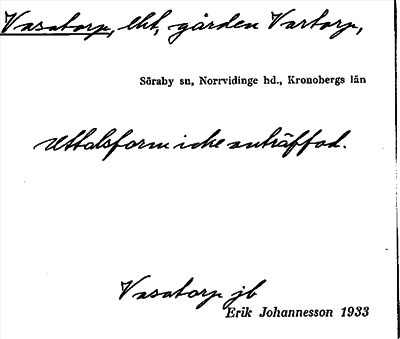 Vasatorp, lht, gården Vartorp,
Söraby sn, Norrvidinge hd., Kronobergs län
Uttalsform icke anträffad.
Vasatorp jb
Erik Johannesson 1933